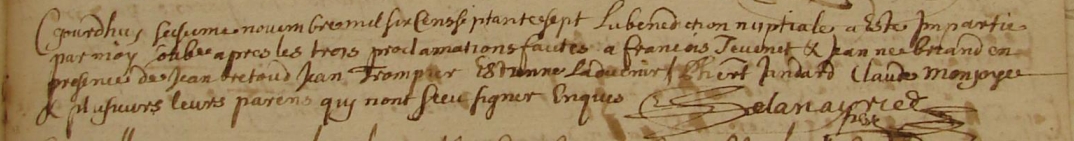 Ce jourdhuy seisieme novembre mil six cens septante sept La benediction nuptiale a este Impartie
par moy soubne apres les trois proclamations faites a francois Tevenet & Jeanne briand en
presence de Jean bretoud Jean Trompier Estienne Ladvenir phert Jandard Claude monjoye
& plusieurs leurs parens qui nont sceu signer Enquis